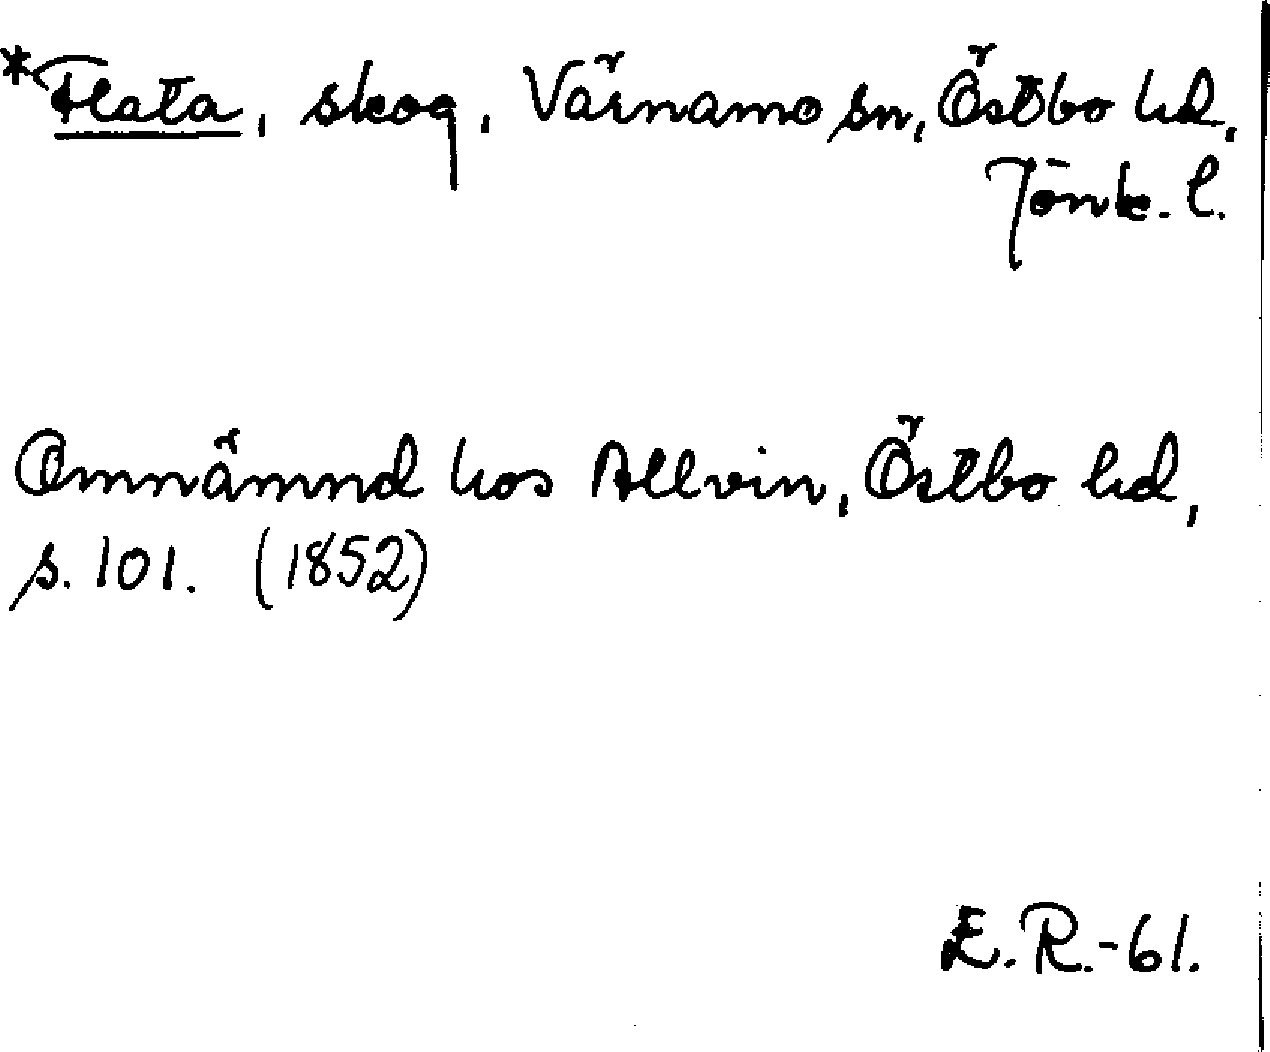 *Flata, skog, Värnamo sn, Östbo hd,
Jönk. l.
Omnämnd hos Allvin, Östbo hd,
s. 101. (1852)
E.R.-61.